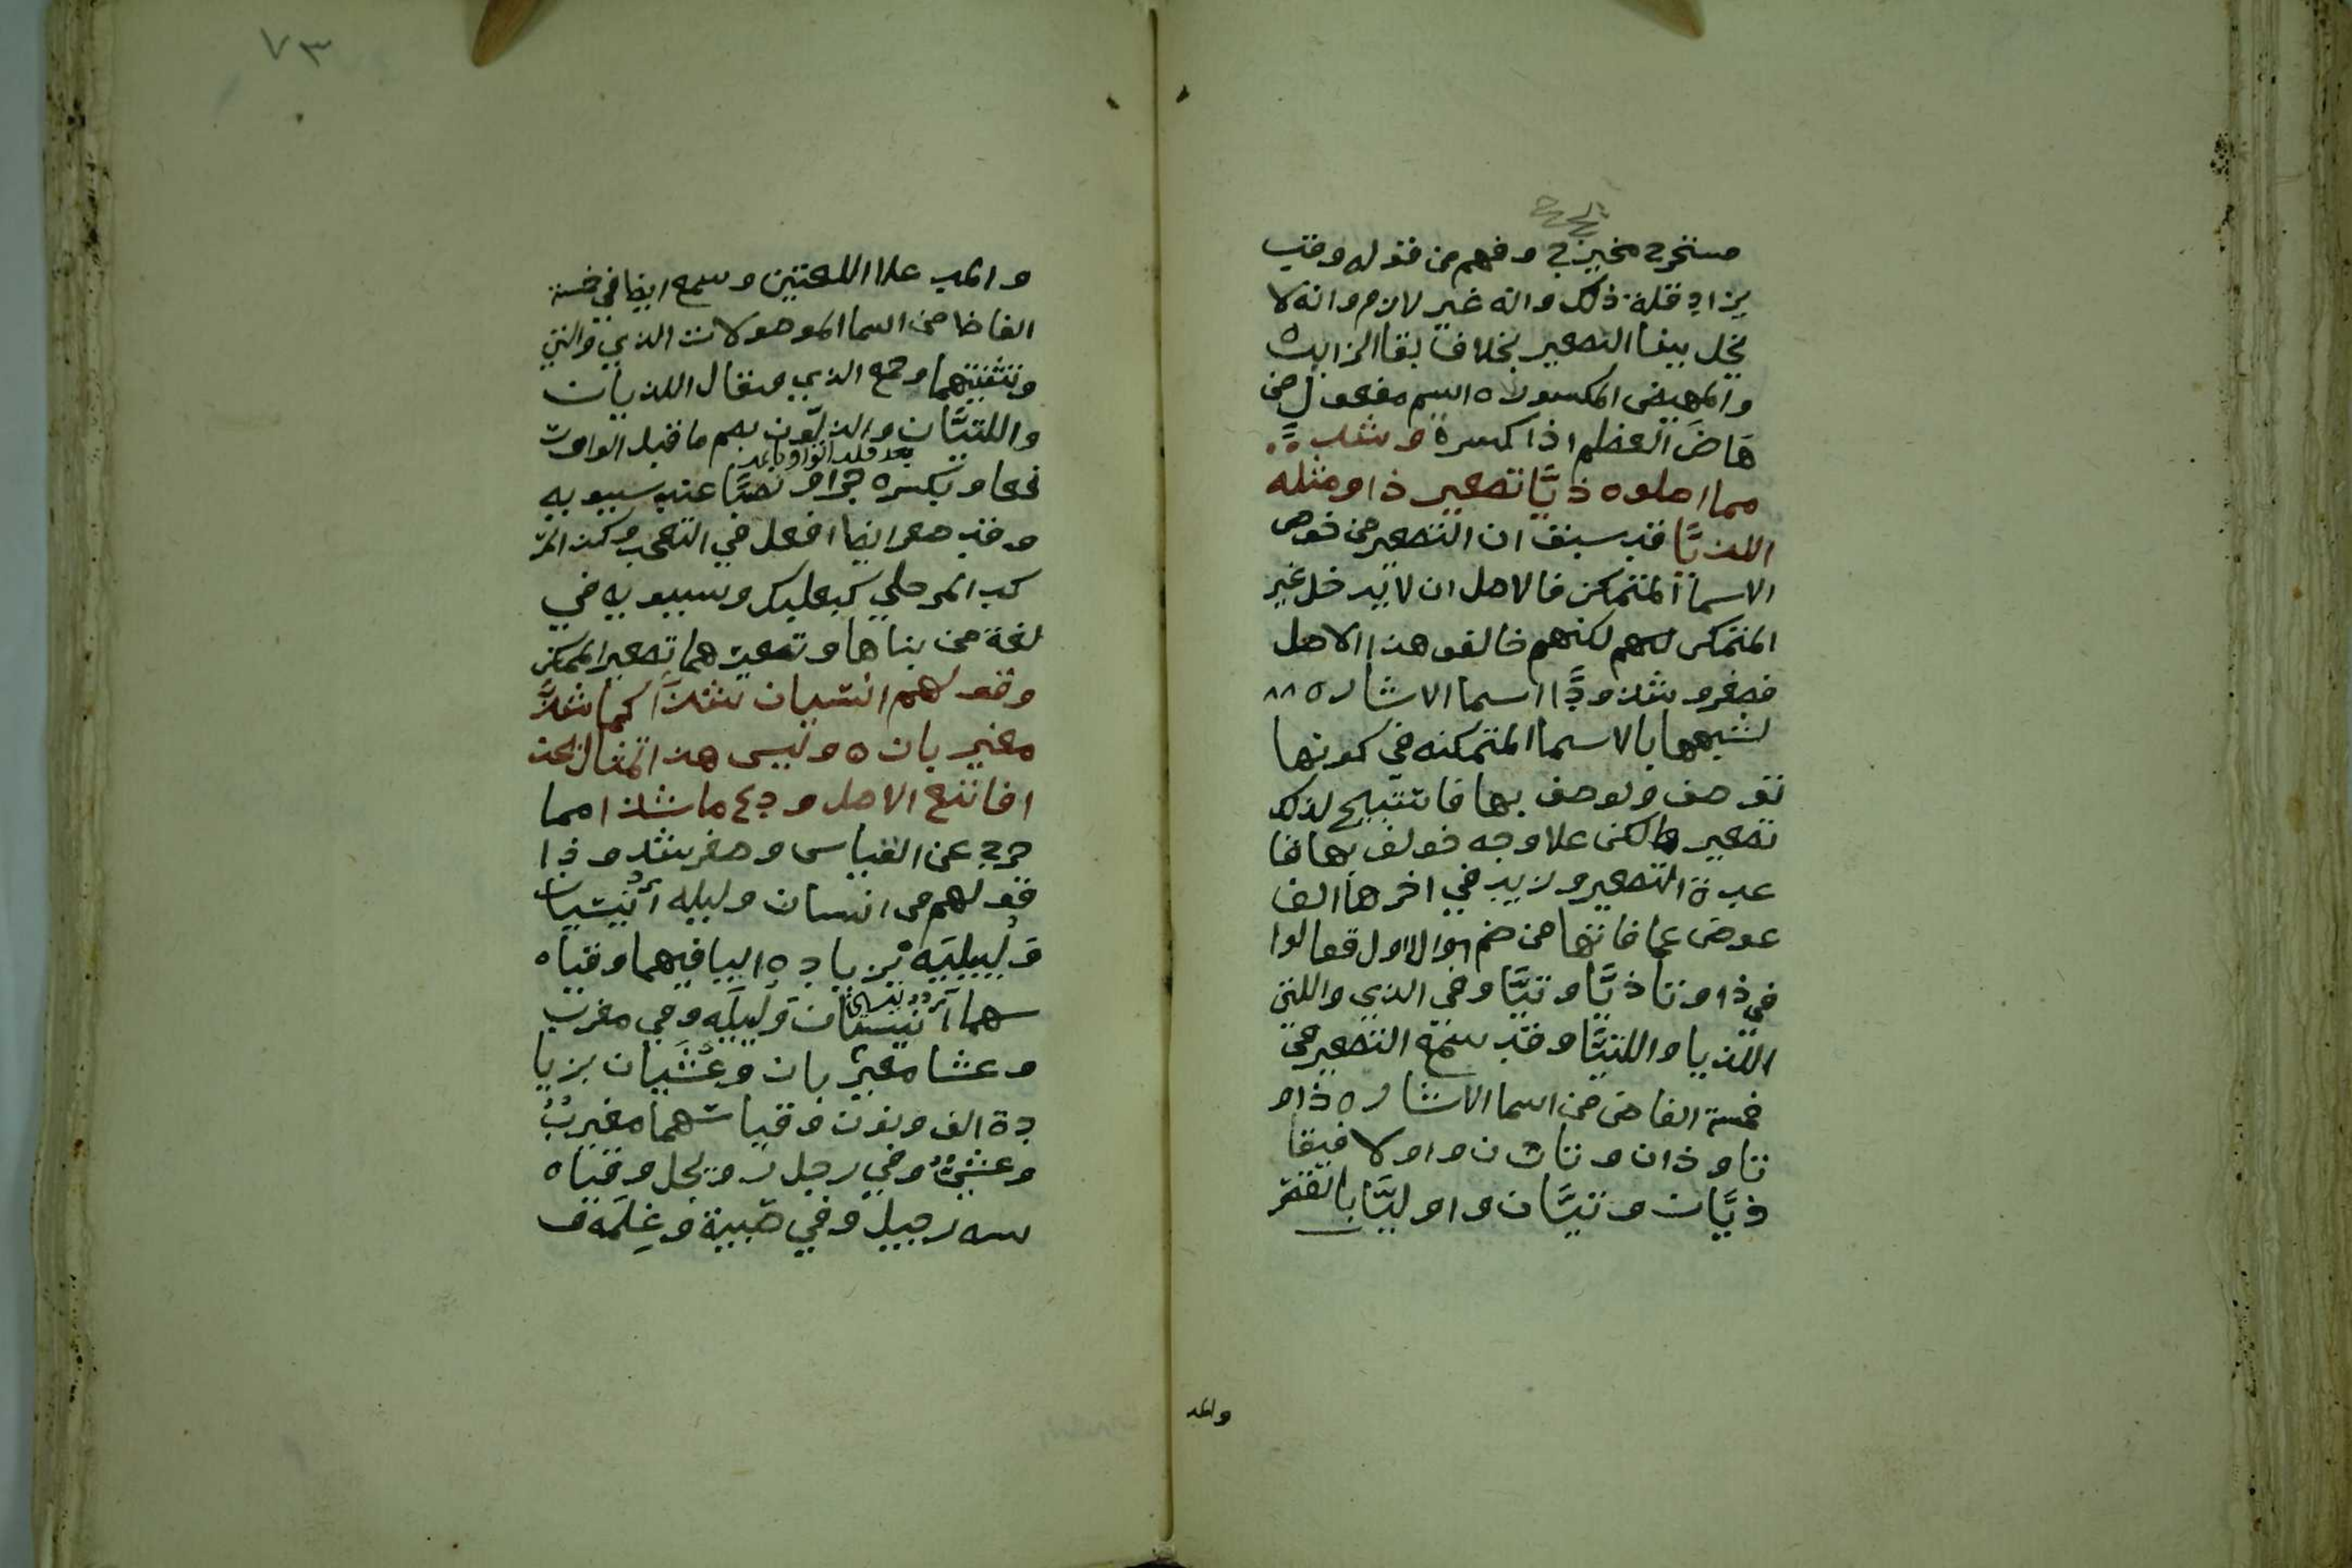 مستخرج مخيرج وفهم من قوله وقد
يزاد قلة ذلك وانه غير لازم وانه لا
يخل ببنا التصغير بخلاف بقا الزايد
والمهيض المكسور اسم مفعول من
هَاضَ العظم اذا كسره وشذ
مما اصلوه ذيَّا تصغير ذا ومثله
اللذيَّا قد سبق ان التصغير من خوص
الاسما المتمكن فالاصل ان لا يدخل غير
المتمكن لكنهم خالفو هذا الاصل
فصغرو شذوذًا اسما الاشاره
لشبهها بالاسما المتمكنه في كونها
توصف ويوصف بها فاستبيح لذلك
تصغيرها لكن علا وجه خولف بها قا
عدة التصغير وزيد في اخرها الف
عوض عما فاتها من ضم الاول فقالوا
في ذا وتا ذيَّا وتيَّا وفي الذي والتي
اللذيا واللتيَّا وقد سمع التصغير في
خمسة الفاض من اسما الاشاره ذا و
تا وذان وتان واولا فيقا
ذيَّان وتيَّان واوليَّا بالقصر
والمد
٧٣
والمد علا اللغتين وسمع ايضا في خمسة
الفاظ من اسما الموصولات الذي والتي
وتثنيتهما وجمع الذي ويقال اللذيان
واللتيَّان والذيّون بضم ما قبل الواو
رفعا وبكسره جرا ونصبًا عند سيبويه
وقد صغر ايضا افعل في التعجب وكذا المر
كب المزجي كبعلبك وسيبويه في
لغة من بناها وتصغيرهما تصغير المتمكن
وقولهم انيسيان شذّا كما شذَّ
مغيربان وليس هذا المثال يحتذ
ا فاتبع الاصل ودع ما شذا مما
خرج عن القياس وصغر شذوذا
قولهم في انسان وليله أُنيسيان
ولُييليَه بزياده اليا فيهما وقياه
سهما أنيسان ولُييلَه وفي مغرب
وعشا مغيربان وعُشَيان بزيا
دة الف ونون وقياسهما مغيربٌ
وعشيٌّ وفي رجل رويجل وقياه
سه رجيل وفي صبية وغِلمَة